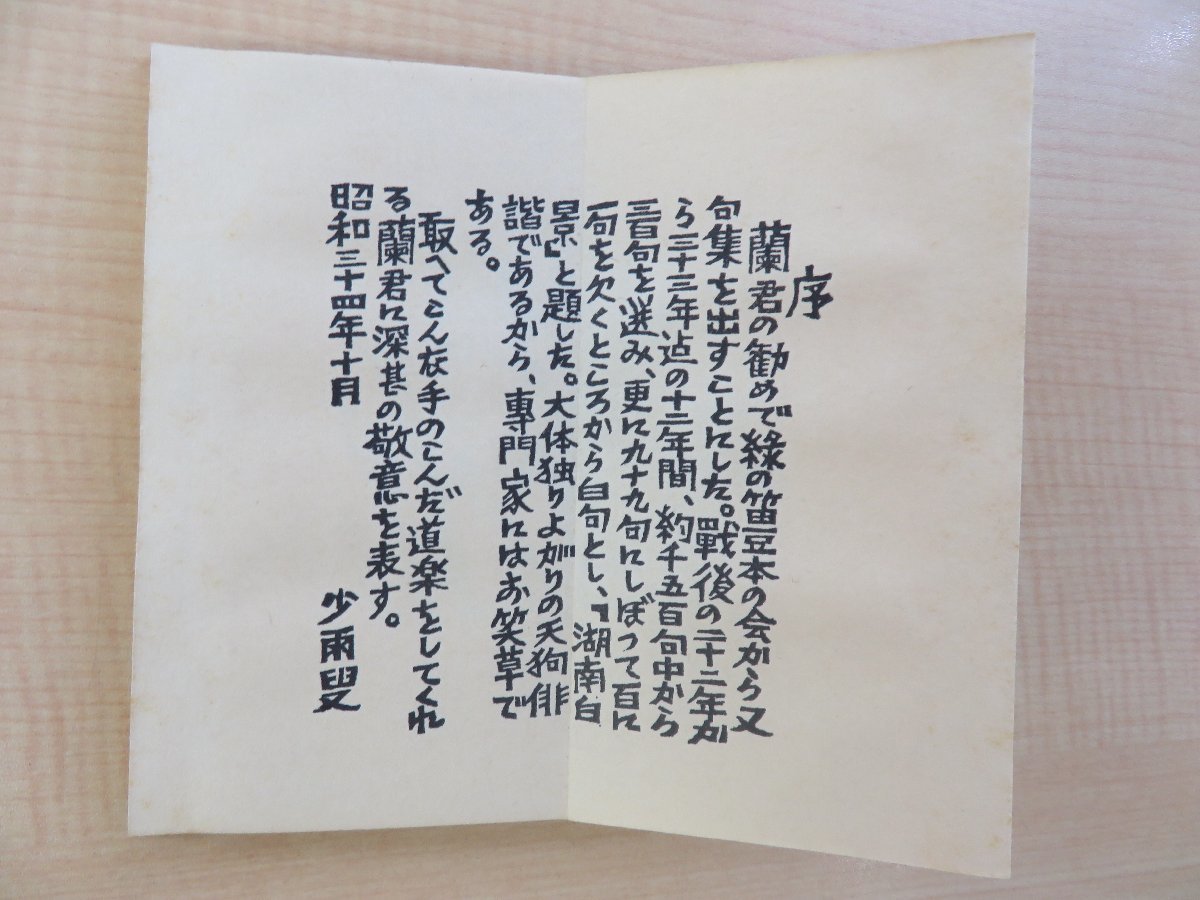 序
蘭君の勧めで緑の笛豆本の会から又
句集を出すことにした。戰後の二十二年か
ら三十三年迠の十二年間、約千五百句中から
三百句を選み、更に九十九句にしぼって百に
一句を欠くところから白句とし、『湖南白
景』と題した。大体独りよがりの天狗俳
諧であるから、專門家にはお笑草で
ある。
敢へてこんな手のこんだ道楽をしてくれ
る蘭君に深甚の敬意を表す。
昭和三十四年十月
少雨叟